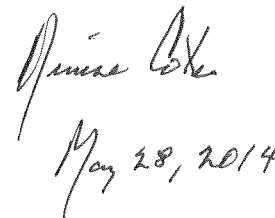 Denise Cote
May 28, 2014